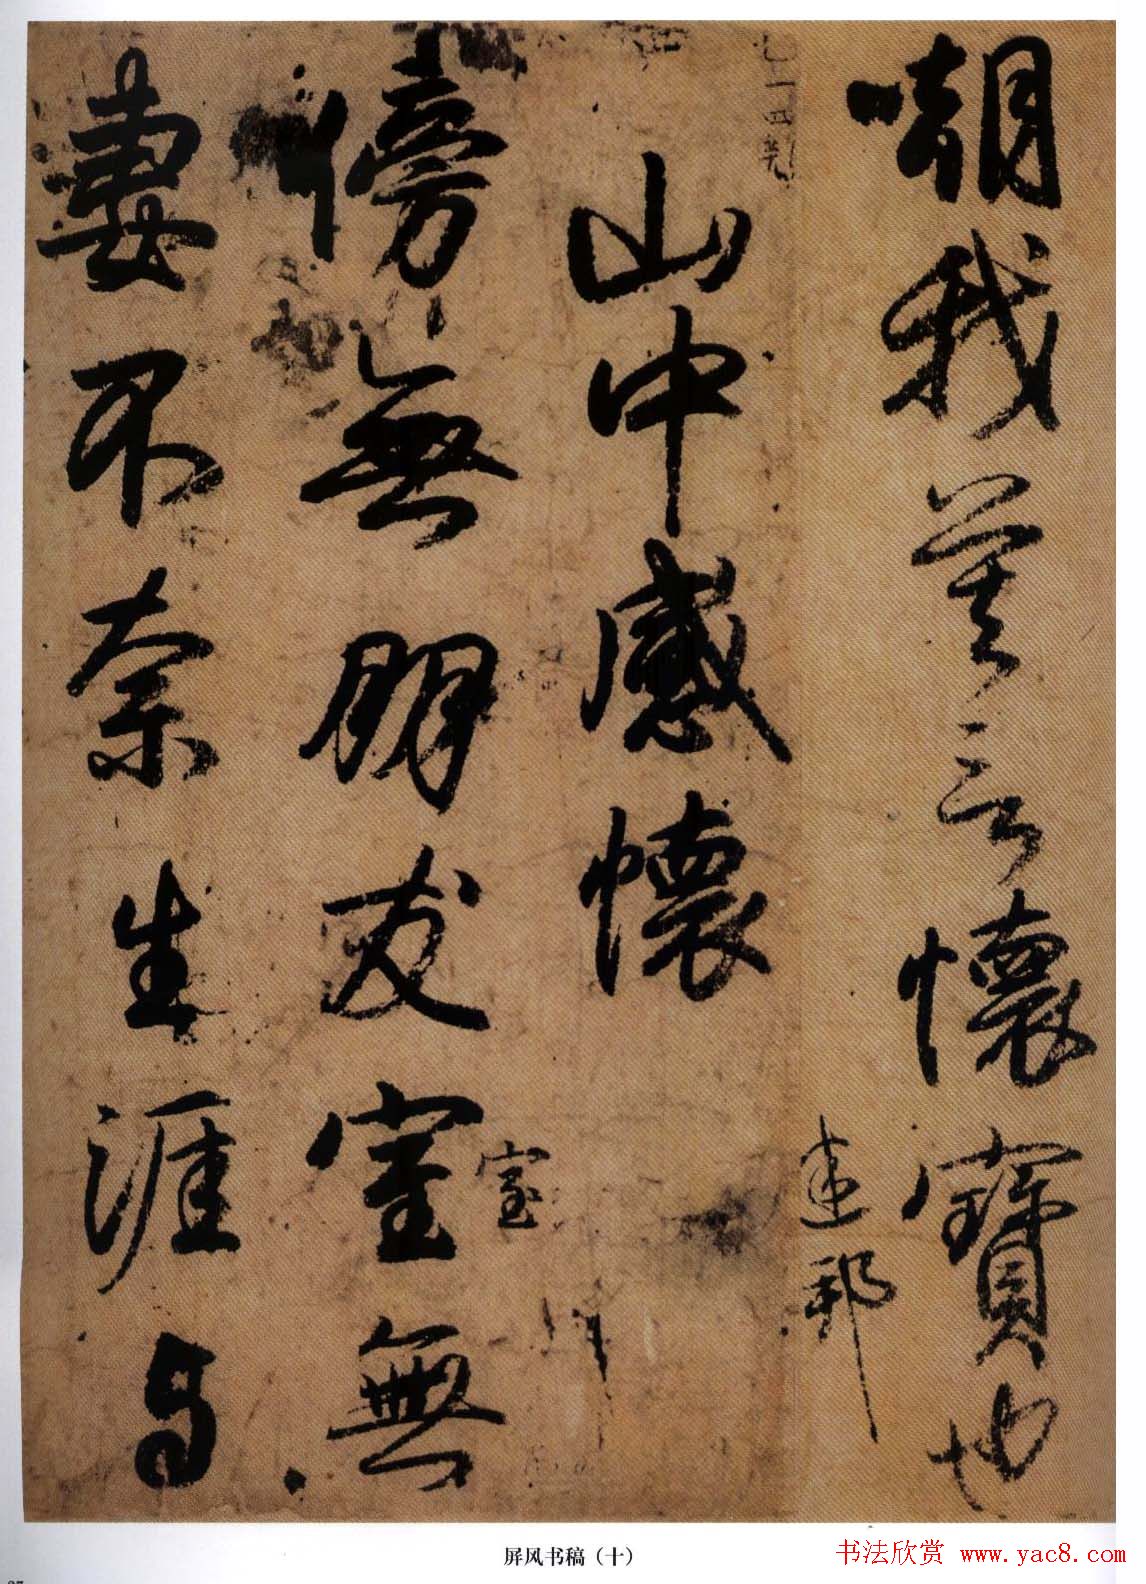 嘲我莫言懷寶也
迷邦
山中感懷
室
傍無朋友室無
妻不奈生涯与
屏风书稿（十）
书法欣赏 www.yac8.com